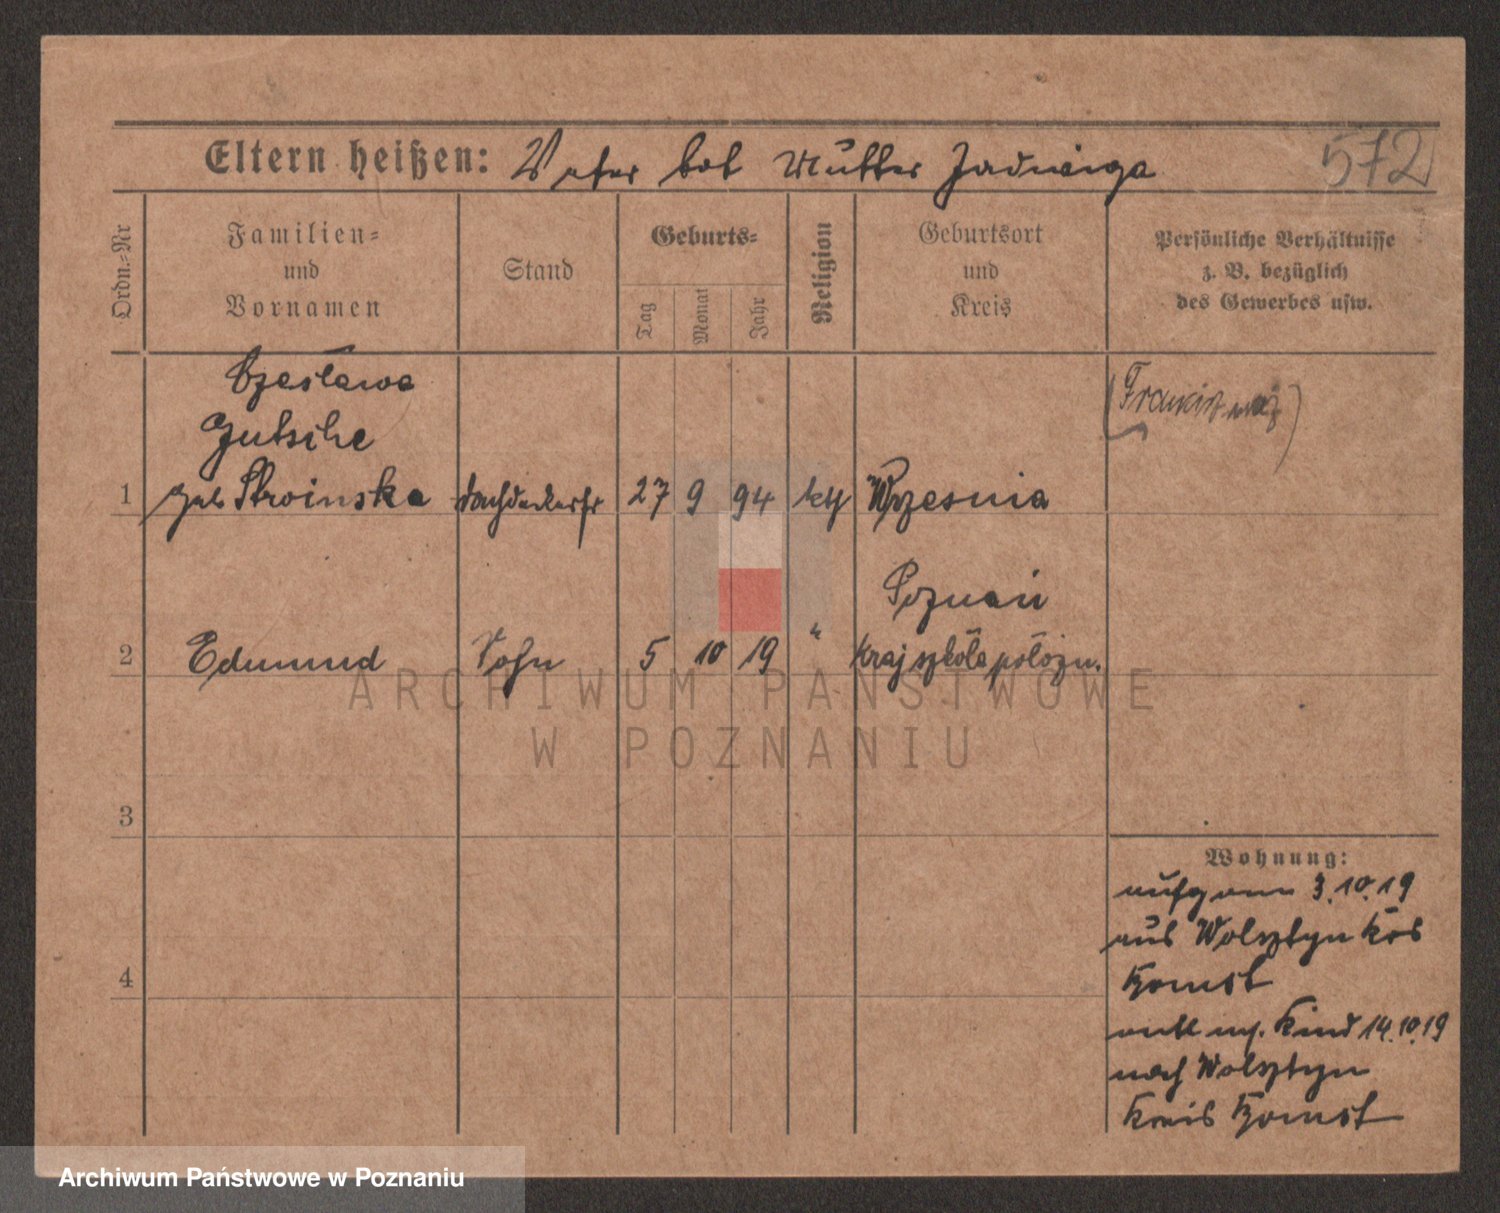 572
Eltern heißen: Vater tot Mutter Jadwiga
Ordn.-Nr
Familien-
und
Vornamen
Stand
Geburts-
Tag
Monat
Jahr
Religion
Geburtsort
und
Kreis
Persönliche Verhältnisse
z. B. bezüglich
des Gewerbes usw.
Czesława
Gutsche
1 geb Stroinska Dachdeckerfr 27 9 94 kth Wrzesnia
(Franciszek)
Poznań
2 Edmund Sohn 5 10 19 " Kraj szkóła położn.
3
4
Wohnung:
aufgenom 3.10.19
aus Wolsztyn Krs
Bomst
entl m. Kind 14.10.19
nach Wolsztyn
Kreis Bomst
ARCHIWUM PAŃSTWOWE
W POZNANIU
Archiwum Państwowe w Poznaniu